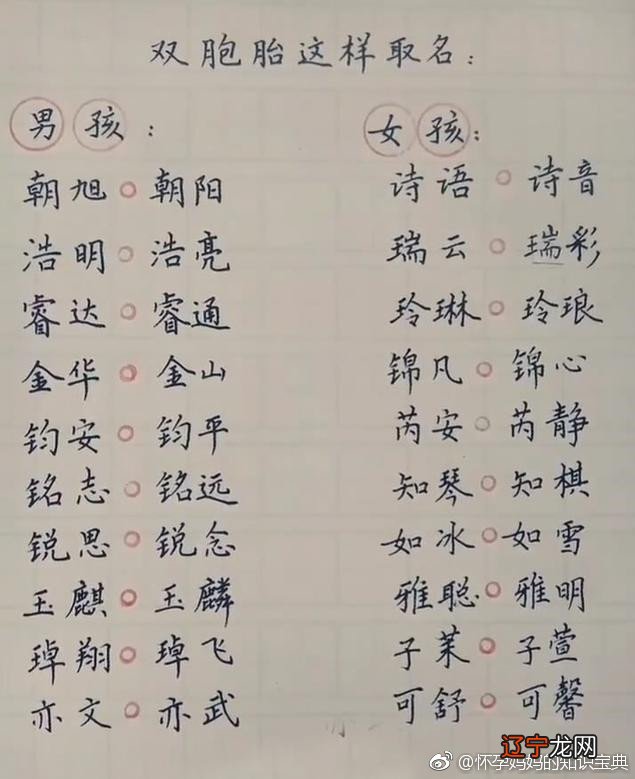 双胞胎这样取名：
男孩：
朝旭○朝阳
浩明○浩亮
睿达○睿通
金华○金山
钧安○钧平
铭志○铭远
锐思○锐念
玉麒○玉麟
琸翔○琸飞
亦文○亦武
女孩：
诗语○诗音
瑞云○瑞彩
玲琳○玲琅
锦凡○锦心
芮安○芮静
知琴○知棋
如冰○如雪
雅聪○雅明
子茉○子萱
可舒○可馨
辽宁龙网
@怀孕妈妈的知识宝典